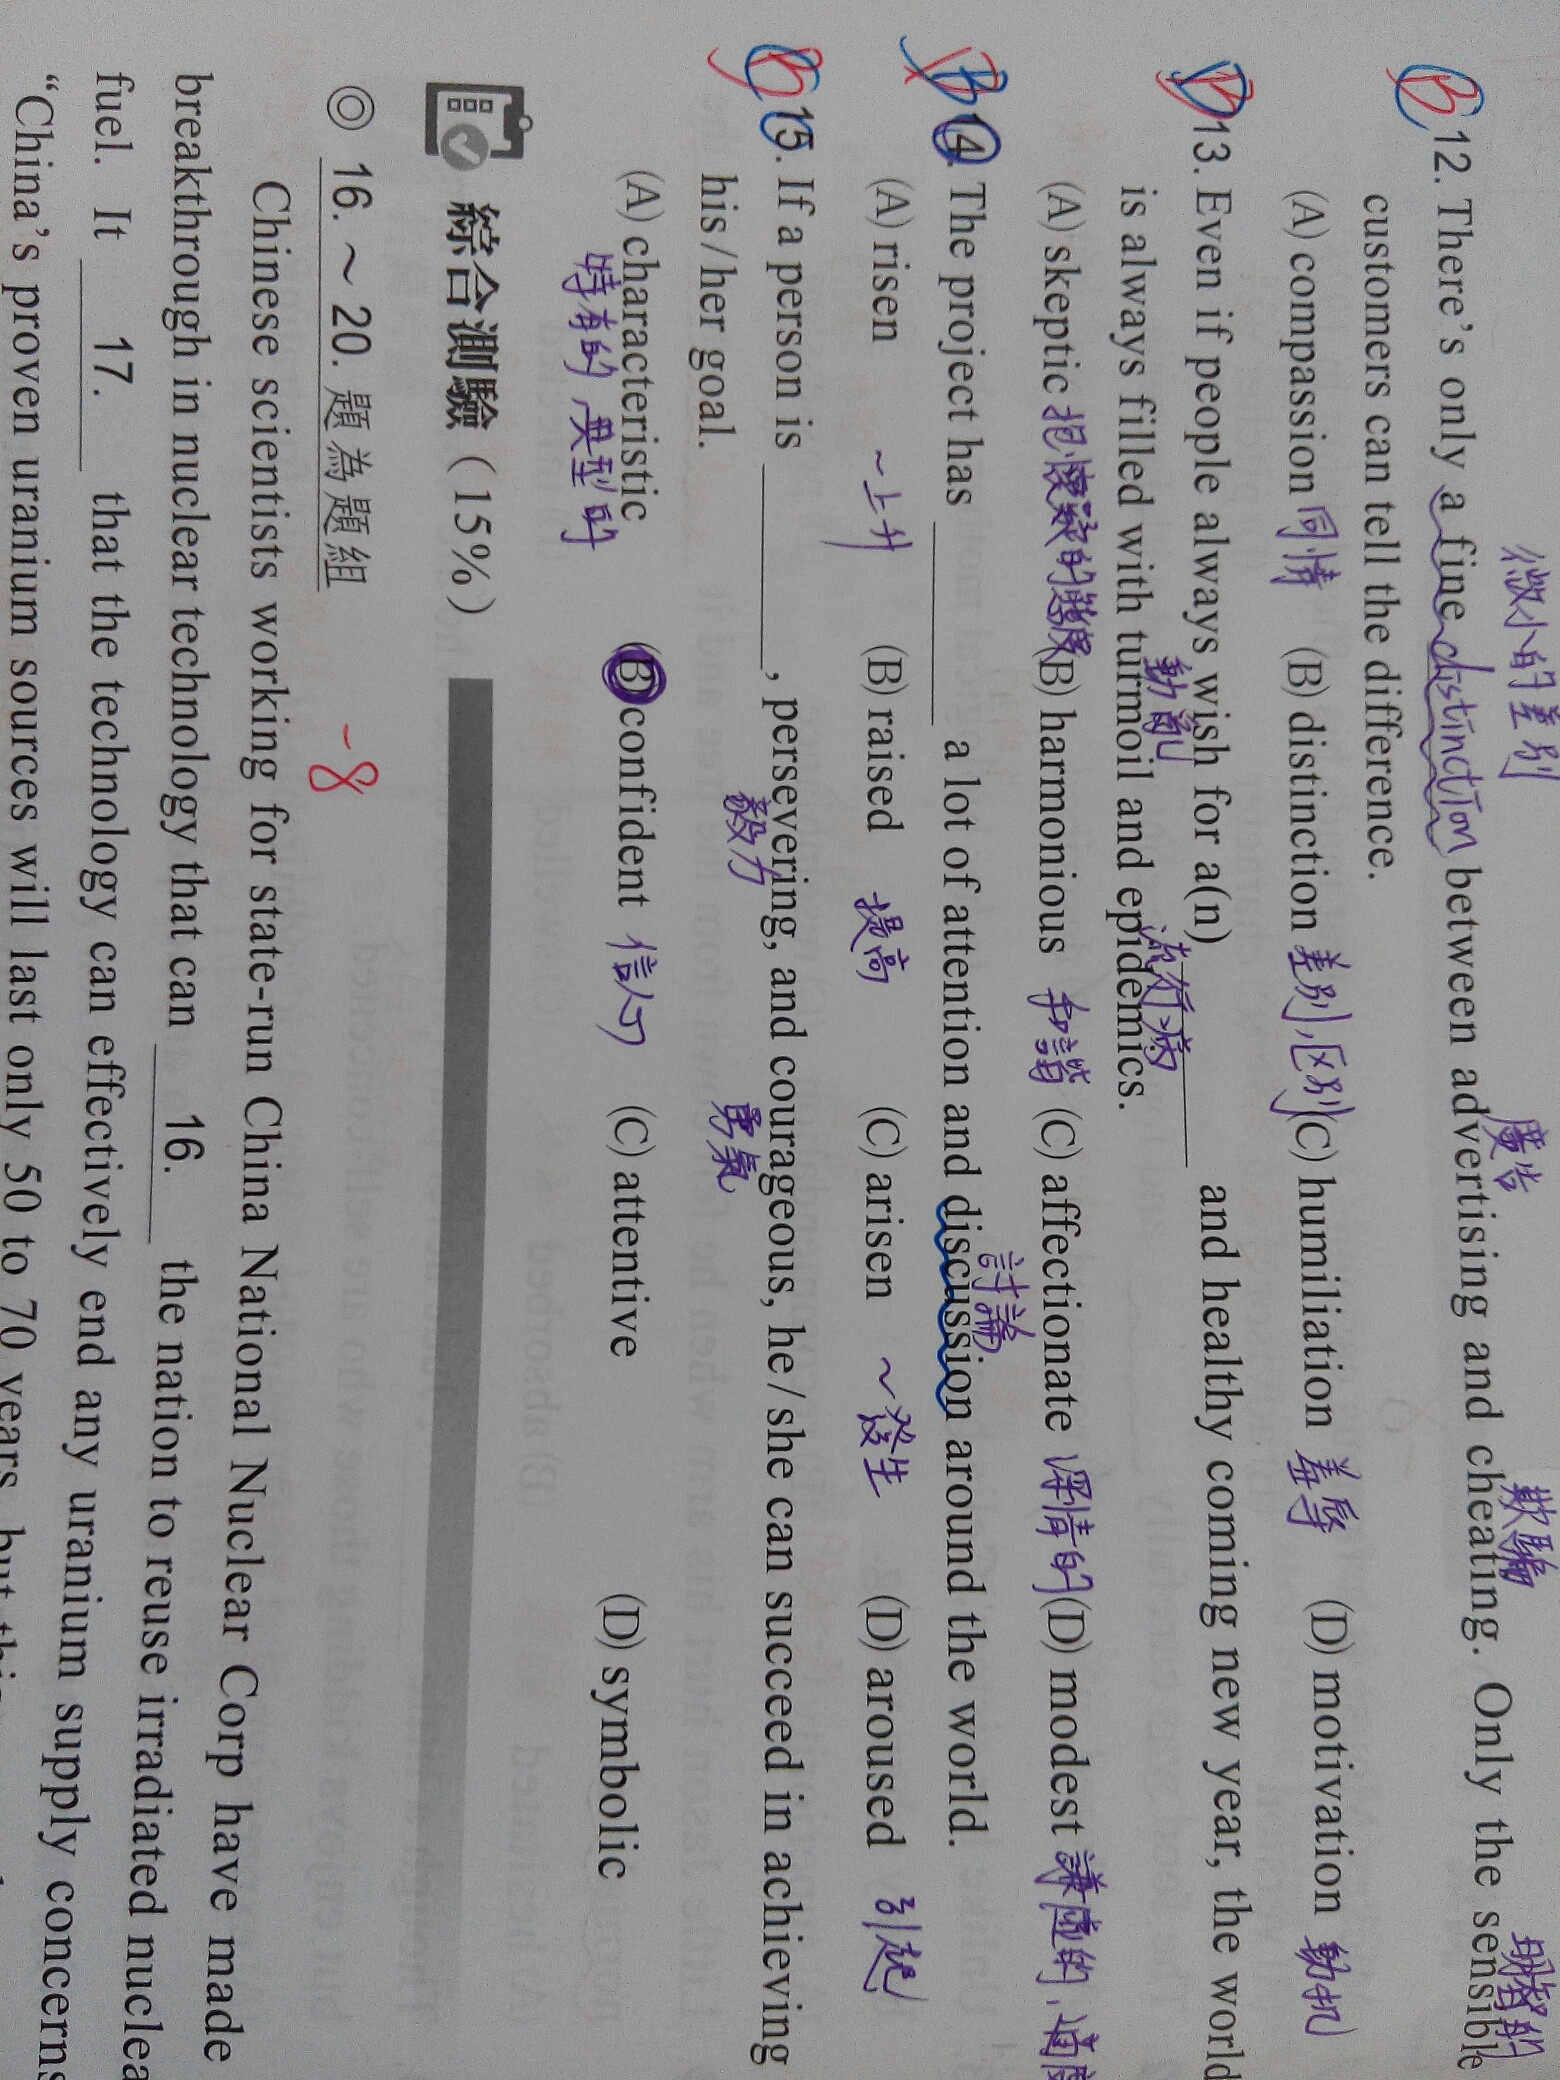 微小的差別 廣告 欺騙 明智的
B 12. There's only a fine distinction between advertising and cheating. Only the sensible
customers can tell the difference.
(A) compassion 同情 (B) distinction 差別,区別 (C) humiliation 羞辱 (D) motivation 動机
13. Even if people always wish for a(n) ________ and healthy coming new year, the world
動亂 流行病
is always filled with turmoil and epidemics.
(A) skeptic 抱懷疑的態度 (B) harmonious 和諧 (C) affectionate 深情的 (D) modest 謙虛的,適度
B 14. The project has ________ a lot of attention and discussion around the world.
討論
(A) risen ~上升 (B) raised 提高 (C) arisen ~發生 (D) aroused 引起
B 15. If a person is ________, persevering, and courageous, he/she can succeed in achieving
毅力 勇氣
his/her goal.
(A) characteristic (B) confident 信心 (C) attentive (D) symbolic
特有的 典型的
綜合測驗（15%）
◎ 16.～20. 題為題組 -8
Chinese scientists working for state-run China National Nuclear Corp have made
breakthrough in nuclear technology that can 16. the nation to reuse irradiated nuclea
fuel. It 17. that the technology can effectively end any uranium supply concerns
"China's proven uranium sources will last only 50 to 70 years, but